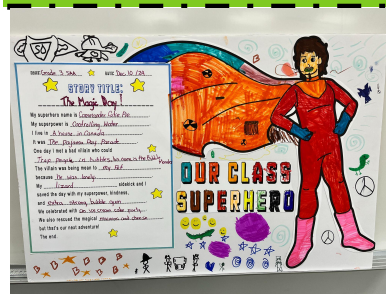 NAME: Grade 3 SAA DATE: Dec 10/24
STORY TITLE:
The Magic Day!
My superhero's name is Commander Cutie Pie
My superpower is Controlling Water
I live in A house in Canada
It was The Pajama Day Parade
One day I met a bad villain who could
Trap people in bubbles, his name is the Bubbly
The villain was being mean to my Pet
because He was lonely
My lizard sidekick and I
saved the day with my superpower, kindness,
and extra strong bubble gum
We celebrated with an ice cream cake party
We also rescued the magical macaroni and cheese
but that's our next adventure!
The end.
OUR CLASS
SUPERHERO